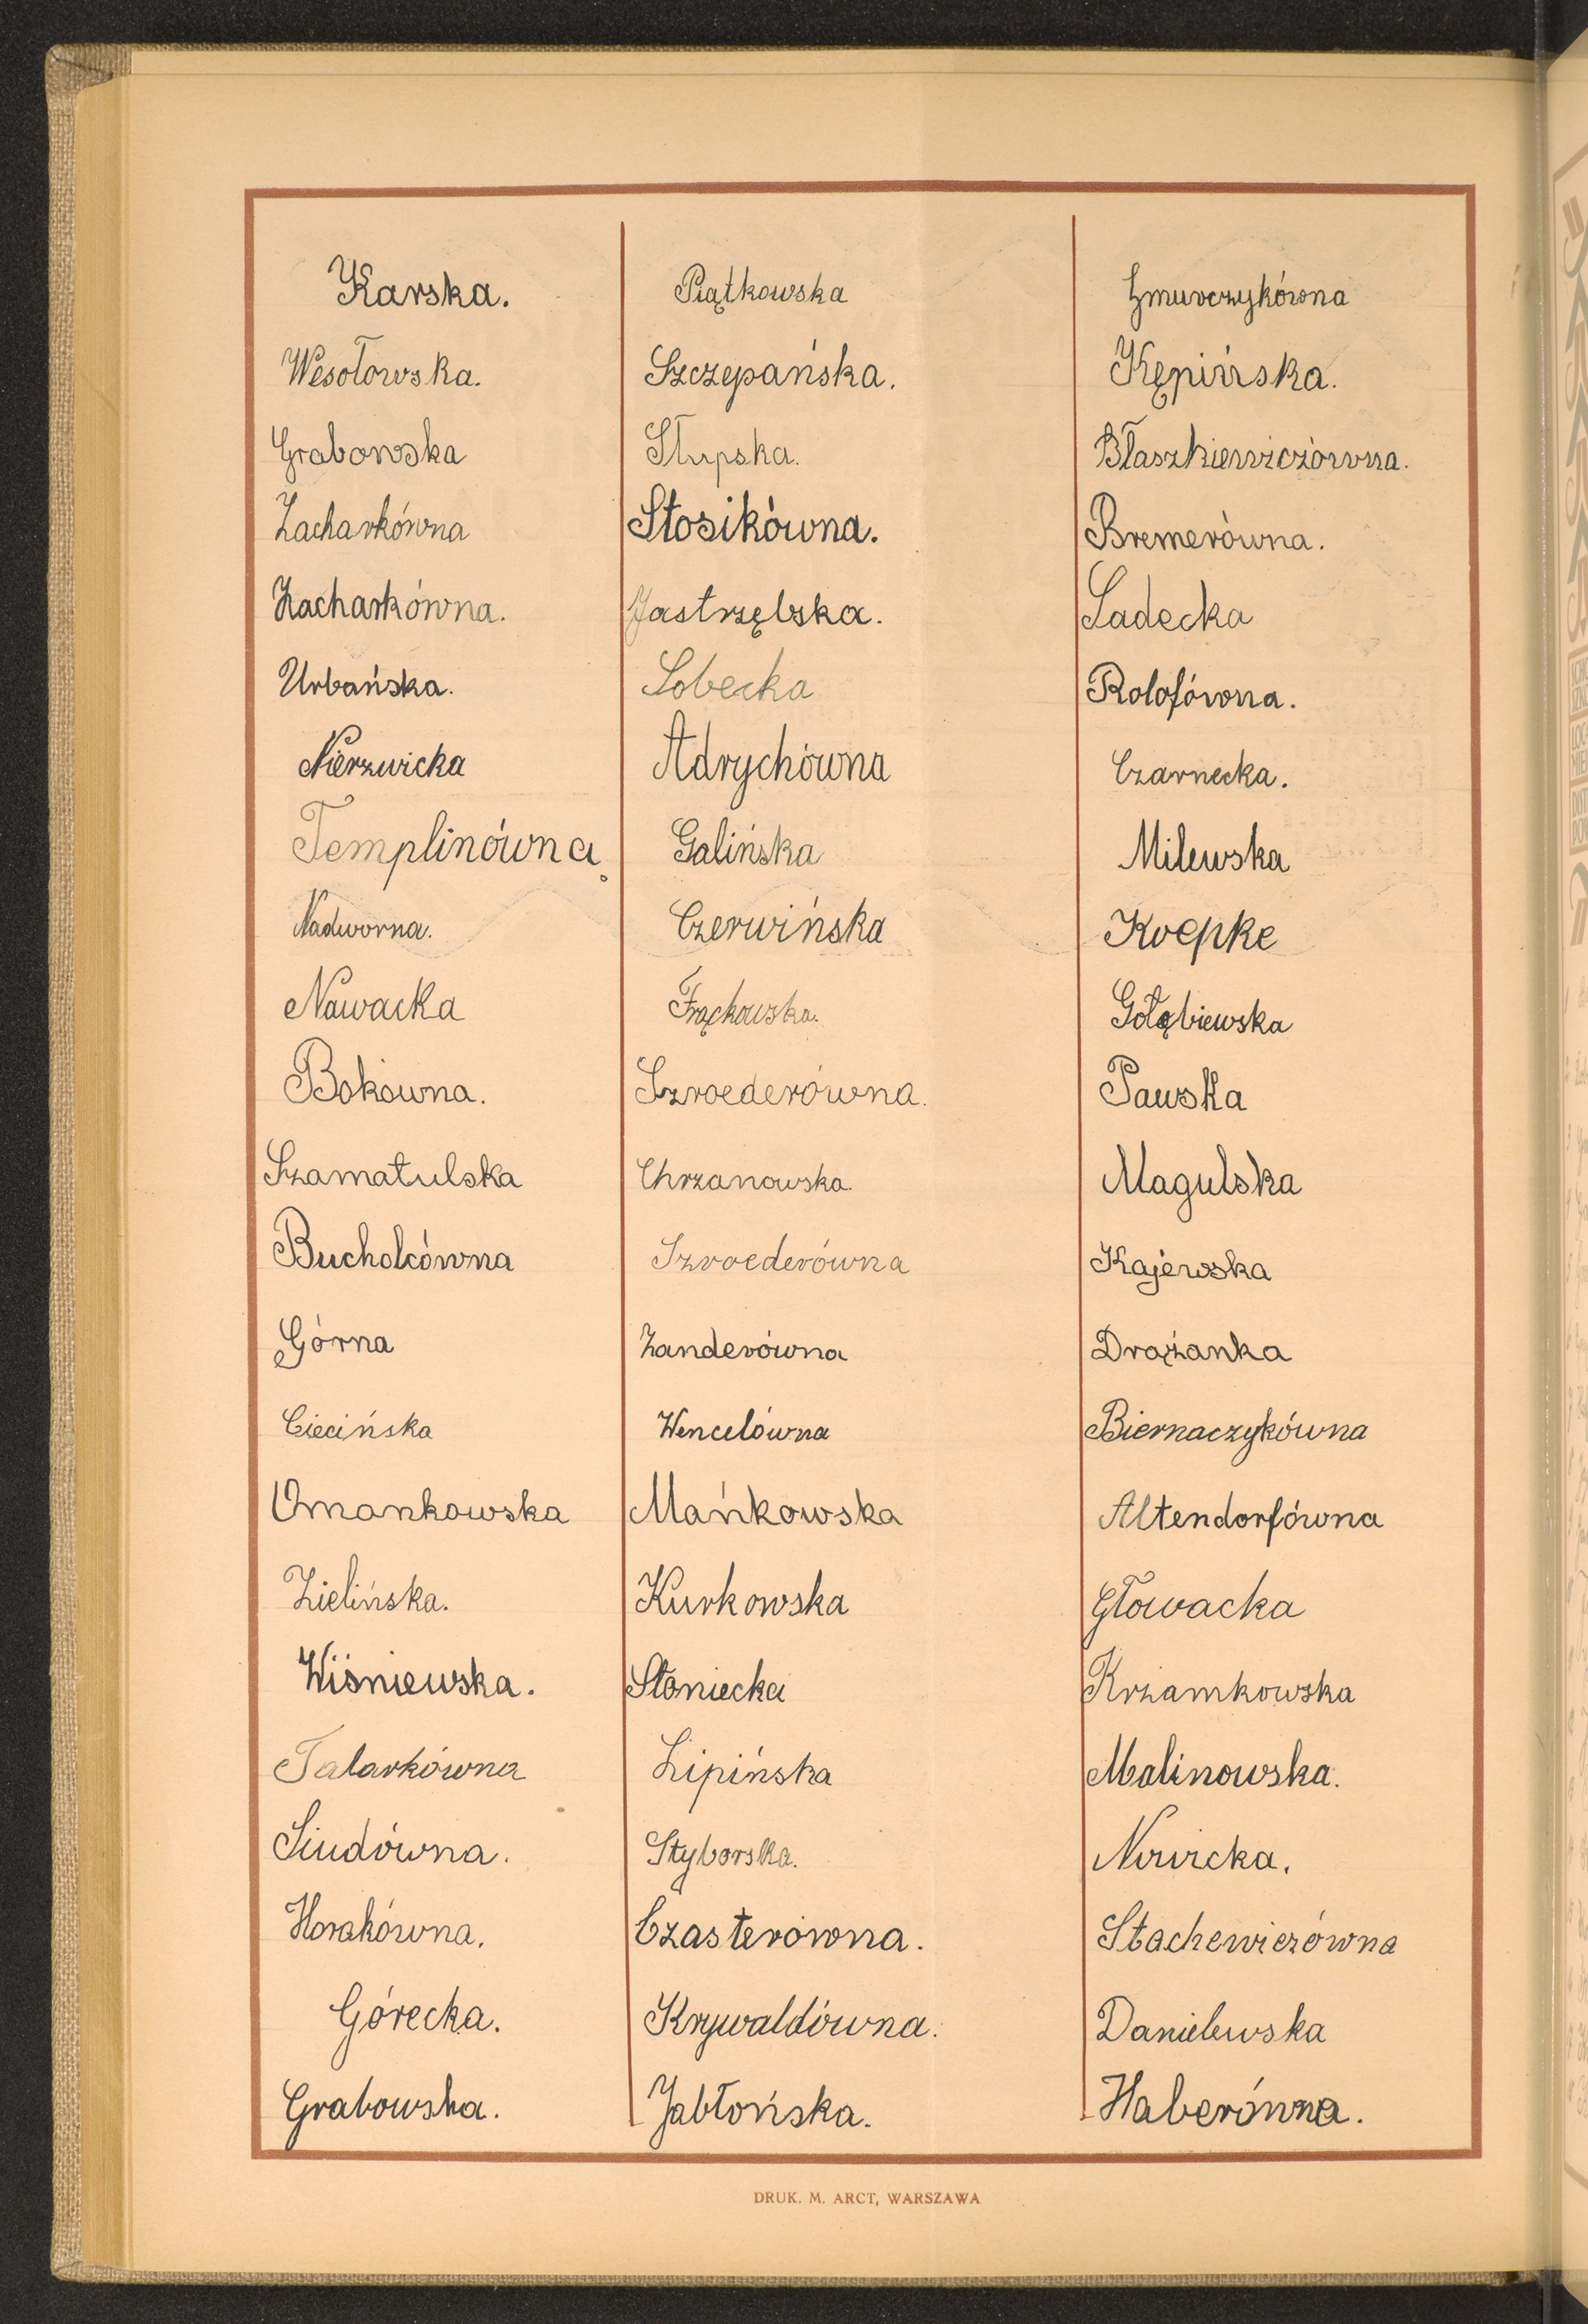 Karska.
Wesołowska.
Grabowska
Zacharkówna
Zacharkówna.
Urbańska.
Nierzwicka
Templinówna.
Nadworna.
Nawacka
Bokówna.
Szamatulska
Bucholcówna
Górna
Ciecińska
Umankowska
Zielińska.
Wiśniewska.
Talarkówna
Siudówna.
Horakówna.
Górecka.
Grabowska.
Piątkowska
Szczepańska.
Słupska.
Stosikówna.
Jastrzębska.
Sobecka
Adrychówna
Galińska
Czerwińska
Frąckowska.
Szroederówna.
Chrzanowska.
Szroederówna
Zanderówna
Wencelówna
Mańkowska
Kurkowska
Słoniecka
Lipińska
Styborska.
Czasterówna.
Krywaldówna.
Jabłońska.
Żmurczykówna
Kępińska.
Błaszkiewiczówna.
Bremerówna.
Sadecka
Rolofówna.
Czarnecka.
Milewska
Koepke
Gołębiewska
Pawska
Magulska
Kajewska
Drążanka
Biernaczykówna
Altendorfówna
Głowacka
Krzamkowska
Malinowska.
Stachewiczówna
Danielewska
Haberówna.
DRUK. M. ARCT, WARSZAWA